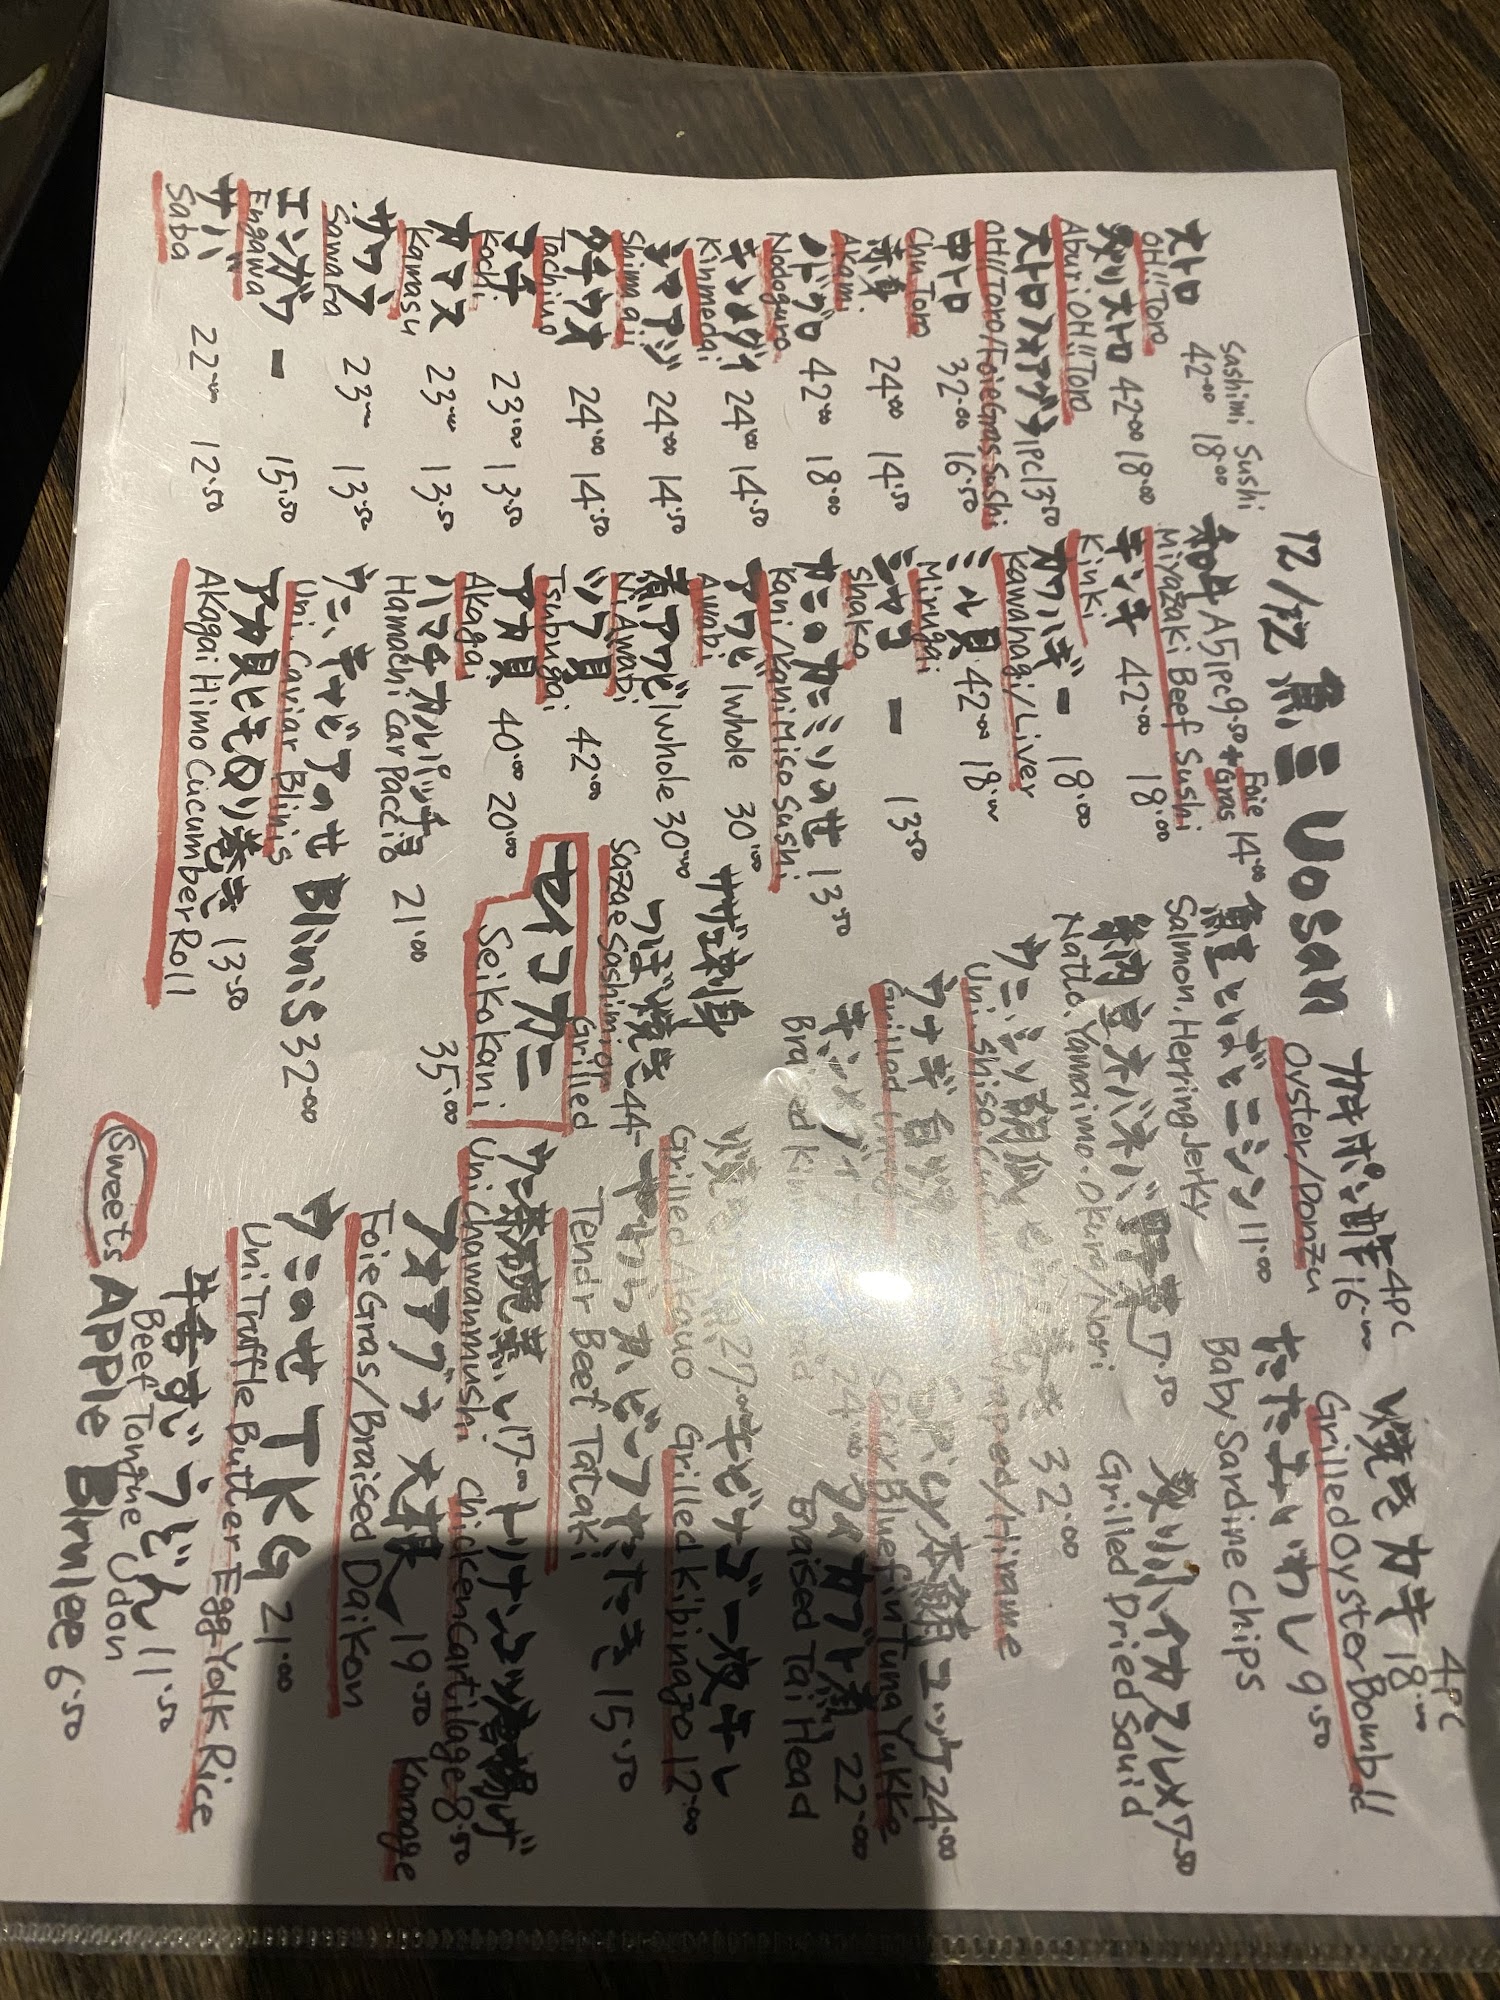 12/12 魚三 Uosan
Sashimi Sushi
大トロ 42.00 18.00
OH!! Toro
炙り大トロ 42.00 18.00
Aburi OH!! Toro
大トロフォアグラ 1PC 13.50
OH!! Toro/Foie Gras Sushi
中トロ 32.00 16.50
Chu Toro
赤身 24.00 14.50
Akami
ノドグロ 42.00 18.00
Nodoguro
キンメダイ 24.00 14.50
Kinmedai
シマアジ 24.00 14.50
Shima aji
タチウオ 24.00 14.50
Tachiuo
コチ 23.00 13.50
Kochi
カマス 23.00 13.50
Kamasu
サワラ 23.00 13.50
Sawara
エンガワ - 15.50
Engawa
サバ 22.00 12.50
Saba
和牛 A5 1PC 9.50 + Foie Gras 14.00
Miyazaki Beef Sushi
キンキ 42.00 18.00
Kinki
カワハギ - 18.00
Kawahagi/Liver
ミル貝 42.00 18.00
Mirugai
シャコ - 13.50
Shako
カニのカニミソのせ 13.50
Kani/Kani Miso Sushi
アワビ 1whole 30.00
Awabi
煮アワビ 1whole 30.00
Ni Awabi
ツブ貝 42.00
Tsubugai
アカ貝 40.00 20.00
Akagai
ハマチカルパッチョ 21.00
Hamachi Carpaccio
ウニ、キャビアのせ Blinis 32.00
Uni. Caviar Blinis
アカ貝ヒモQ小巻き 13.50
Akagai Himo Cucumber Roll
サザエ刺身
つぼ焼き 44-
Sazae Sashimi or Grilled
セイコカニ
Seikokani
35.00
カキポン酢 4PC 16.00
Oyster/Ponzu
焼きカキ 4PC 18.00
Grilled Oyster Bomb!!
魚圭とばとニシン 11.00
Salmon, Herring Jerky
たたみいわし 9.50
Baby Sardine Chips
納豆ネバネバ野菜 7.50
Natto. Yamaimo. Okura/Nori
炙り小イカスルメ 7.50
Grilled Dried Squid
32.00
Uni. Shiso
Wraped/Hirame
ウナギ白ヅ
Grilled
本鮪ユッケ 24.00
Spicy Bluefin Tuna Yukke
キンメダイ 24.00
Braised
タイカブト煮 22.00
Braised Tai Head
27.00
Grilled Akauo
キビナゴ一夜干し
Grilled Kibinago 12.00
やわらかビーフたたき 15.50
Tendr Beef Tataki
ウニ茶碗蒸し 17.00
Uni Chawanmushi
トリナンコツ唐揚げ
Chicken Cartilage 8.50 Karaage
フォアグラ大根 19.50
Foie Gras/Braised Daikon
ウニのせTKG 21.00
Uni Truffle Butter Egg Yolk Rice
牛舌すじうどん 11.50
Beef Tongue Udon
Sweets Apple Brulee 6.50